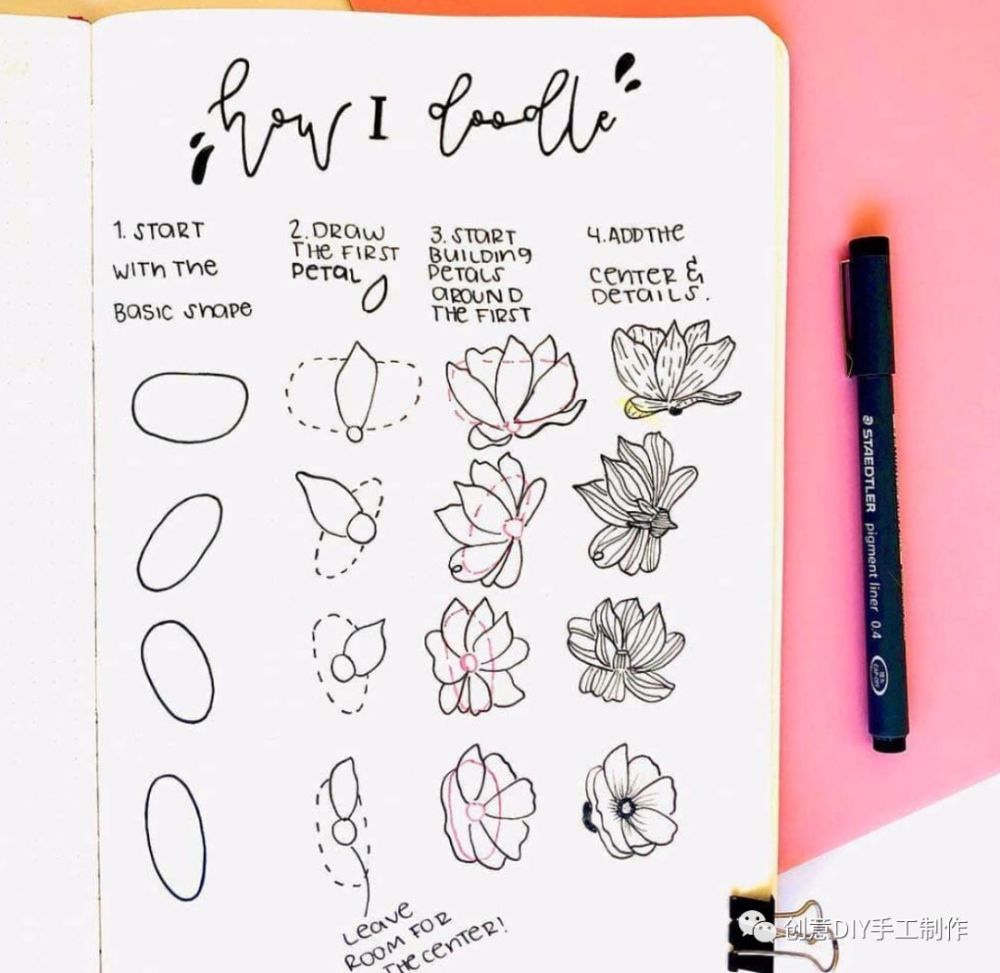 how I doodle
1. START
WITH THE
BASIC SHAPE
2. DRAW
THE FIRST
PETAL
3. START
BUILDING
PETALS
AROUND
THE FIRST
4. ADD THE
CENTER &
DETAILS.
LEAVE
ROOM FOR
THE CENTER!
STAEDTLER pigment liner 0.4
创意DIY手工制作